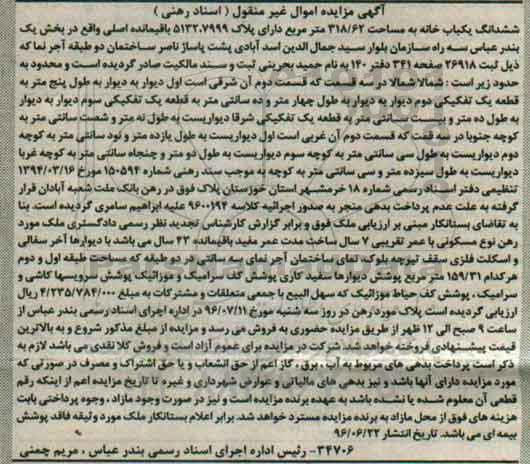 آگهی مزایده اموال غیر منقول ( اسناد رهنی )
ششدانگ یکباب خانه به مساحت ۳۱۸/۶۲ متر مربع دارای پلاک ۵۱۳۲.۷۹۹۹ باقیمانده اصلی واقع در بخش یک
بندر عباس سه راه سازمان بلوار سید جمال الدین اسد آبادی پشت پاساژ ناصر ساختمان دو طبقه آجر نما که
ذیل ثبت ۲۶۹۱۸ صفحه ۳۴۱ دفتر ۱۴۰ به نام حمید بحرینی ثبت و سند مالکیت صادر گردیده است و محدود به
حدود زیر است : شمالا شمالا در سه قسمت که قسمت دوم آن شرقی است اول دیوار به دیوار به طول پنج متر به
قطعه یک تفکیکی دوم دیوار به دیوار به طول چهار متر و ده سانتی متر به قطعه یک تفکیکی سوم دیوار به دیوار
به طول ده متر و بیست سانتی متر به قطعه یک تفکیکی شرقا دیواریست به طول نه متر و شصت سانتی متر به
کوچه جنوبا در سه قمت که قسمت دوم آن غربی است اول دیواریست به طول یازده متر و نود سانتی متر به کوچه
دوم دیواریست به طول سی سانتی متر به کوچه سوم دیواریست به طول دو متر و پنجاه سانتی متر به کوچه غربا
دیواریست به طول سیزده متر و سی سانتی متر به کوچه به موجب سند رهنی شماره ۱۵۰۵۹۴ مورخ ۱۳۹۴/۰۳/۱۶
تنظیمی دفتر اسناد رسمی شماره ۱۸ خرمشهر استان خوزستان پلاک فوق در رهن بانک ملت شعبه آبادان قرار
گرفته به علت عدم پرداخت بدهی منجر به صدور اجرائیه کلاسه ۹۶۰۰۱۹۴ علیه ابراهیم سامری گردیده است. بنا
به تقاضای بستانکار مبنی بر ارزیابی ملک فوق و برابر گزارش کارشناس تجدید نظر رسمی دادگستری ملک مورد
رهن نوع مسکونی با عمر تقریبی ۷ سال ساخت مدت عمر مفید باقیمانده ۴۳ سال می باشد با دیوارها آجر سفالی
و اسکلت فلزی سقف تیرچه بلوک، نمای ساختمان آجر نمای سه سانتی در دو طبقه که مساحت طبقه اول و دوم
هرکدام ۱۵۹/۳۱ متر مربع پوشش دیوارها سفید کاری پوشش کف سرامیک و موزائیک پوشش سرویسها کاشی و
سرامیک، پوشش کف حیاط موزائیک که سهل البیع با جمعی متعلقات و مشترکات به مبلغ ۴/۲۳۵/۷۸۴/۰۰۰ ریال
ارزیابی گردیده است پلاک مورد رهن در روز سه شنبه مورخ ۹۶/۰۷/۱۱ در اداره اجرای اسناد رسمی بندر عباس از
ساعت ۹ صبح الی ۱۲ ظهر از طریق مزایده حضوری به فروش می رسد و مزایده از مبلغ مذکور شروع و به بالاترین
قیمت پیشنهادی فروخته خواهد شد شرکت در مزایده برای عموم آزاد است و فروش کلا نقدی می باشد لازم به
ذکر است پرداخت بدهی های مربوط به آب ، برق ، گاز اعم از حق انشعاب و یا حق اشتراک و مصرف در صورتی که
مورد مزایده دارای آنها باشد و نیز بدهی های مالیاتی و عوارض شهرداری و غیره تا تاریخ مزایده اعم از اینکه رقم
قطعی آن معلوم شده یا نشده باشد به عهده برنده مزایده است و نیز در صورت وجود مازاد ، وجوه پرداختی بابت
هزینه های فوق از محل مازاد به برنده مزایده مسترد خواهد شد. برابر اعلام بستانکار ملک مورد وثیقه فاقد پوشش
بیمه ای می باشد. تاریخ انتشار ۹۶/۰۶/۲۲
۳۴۷۰۶- رئیس اداره اجرای اسناد رسمی بندر عباس ، مریم چمنی